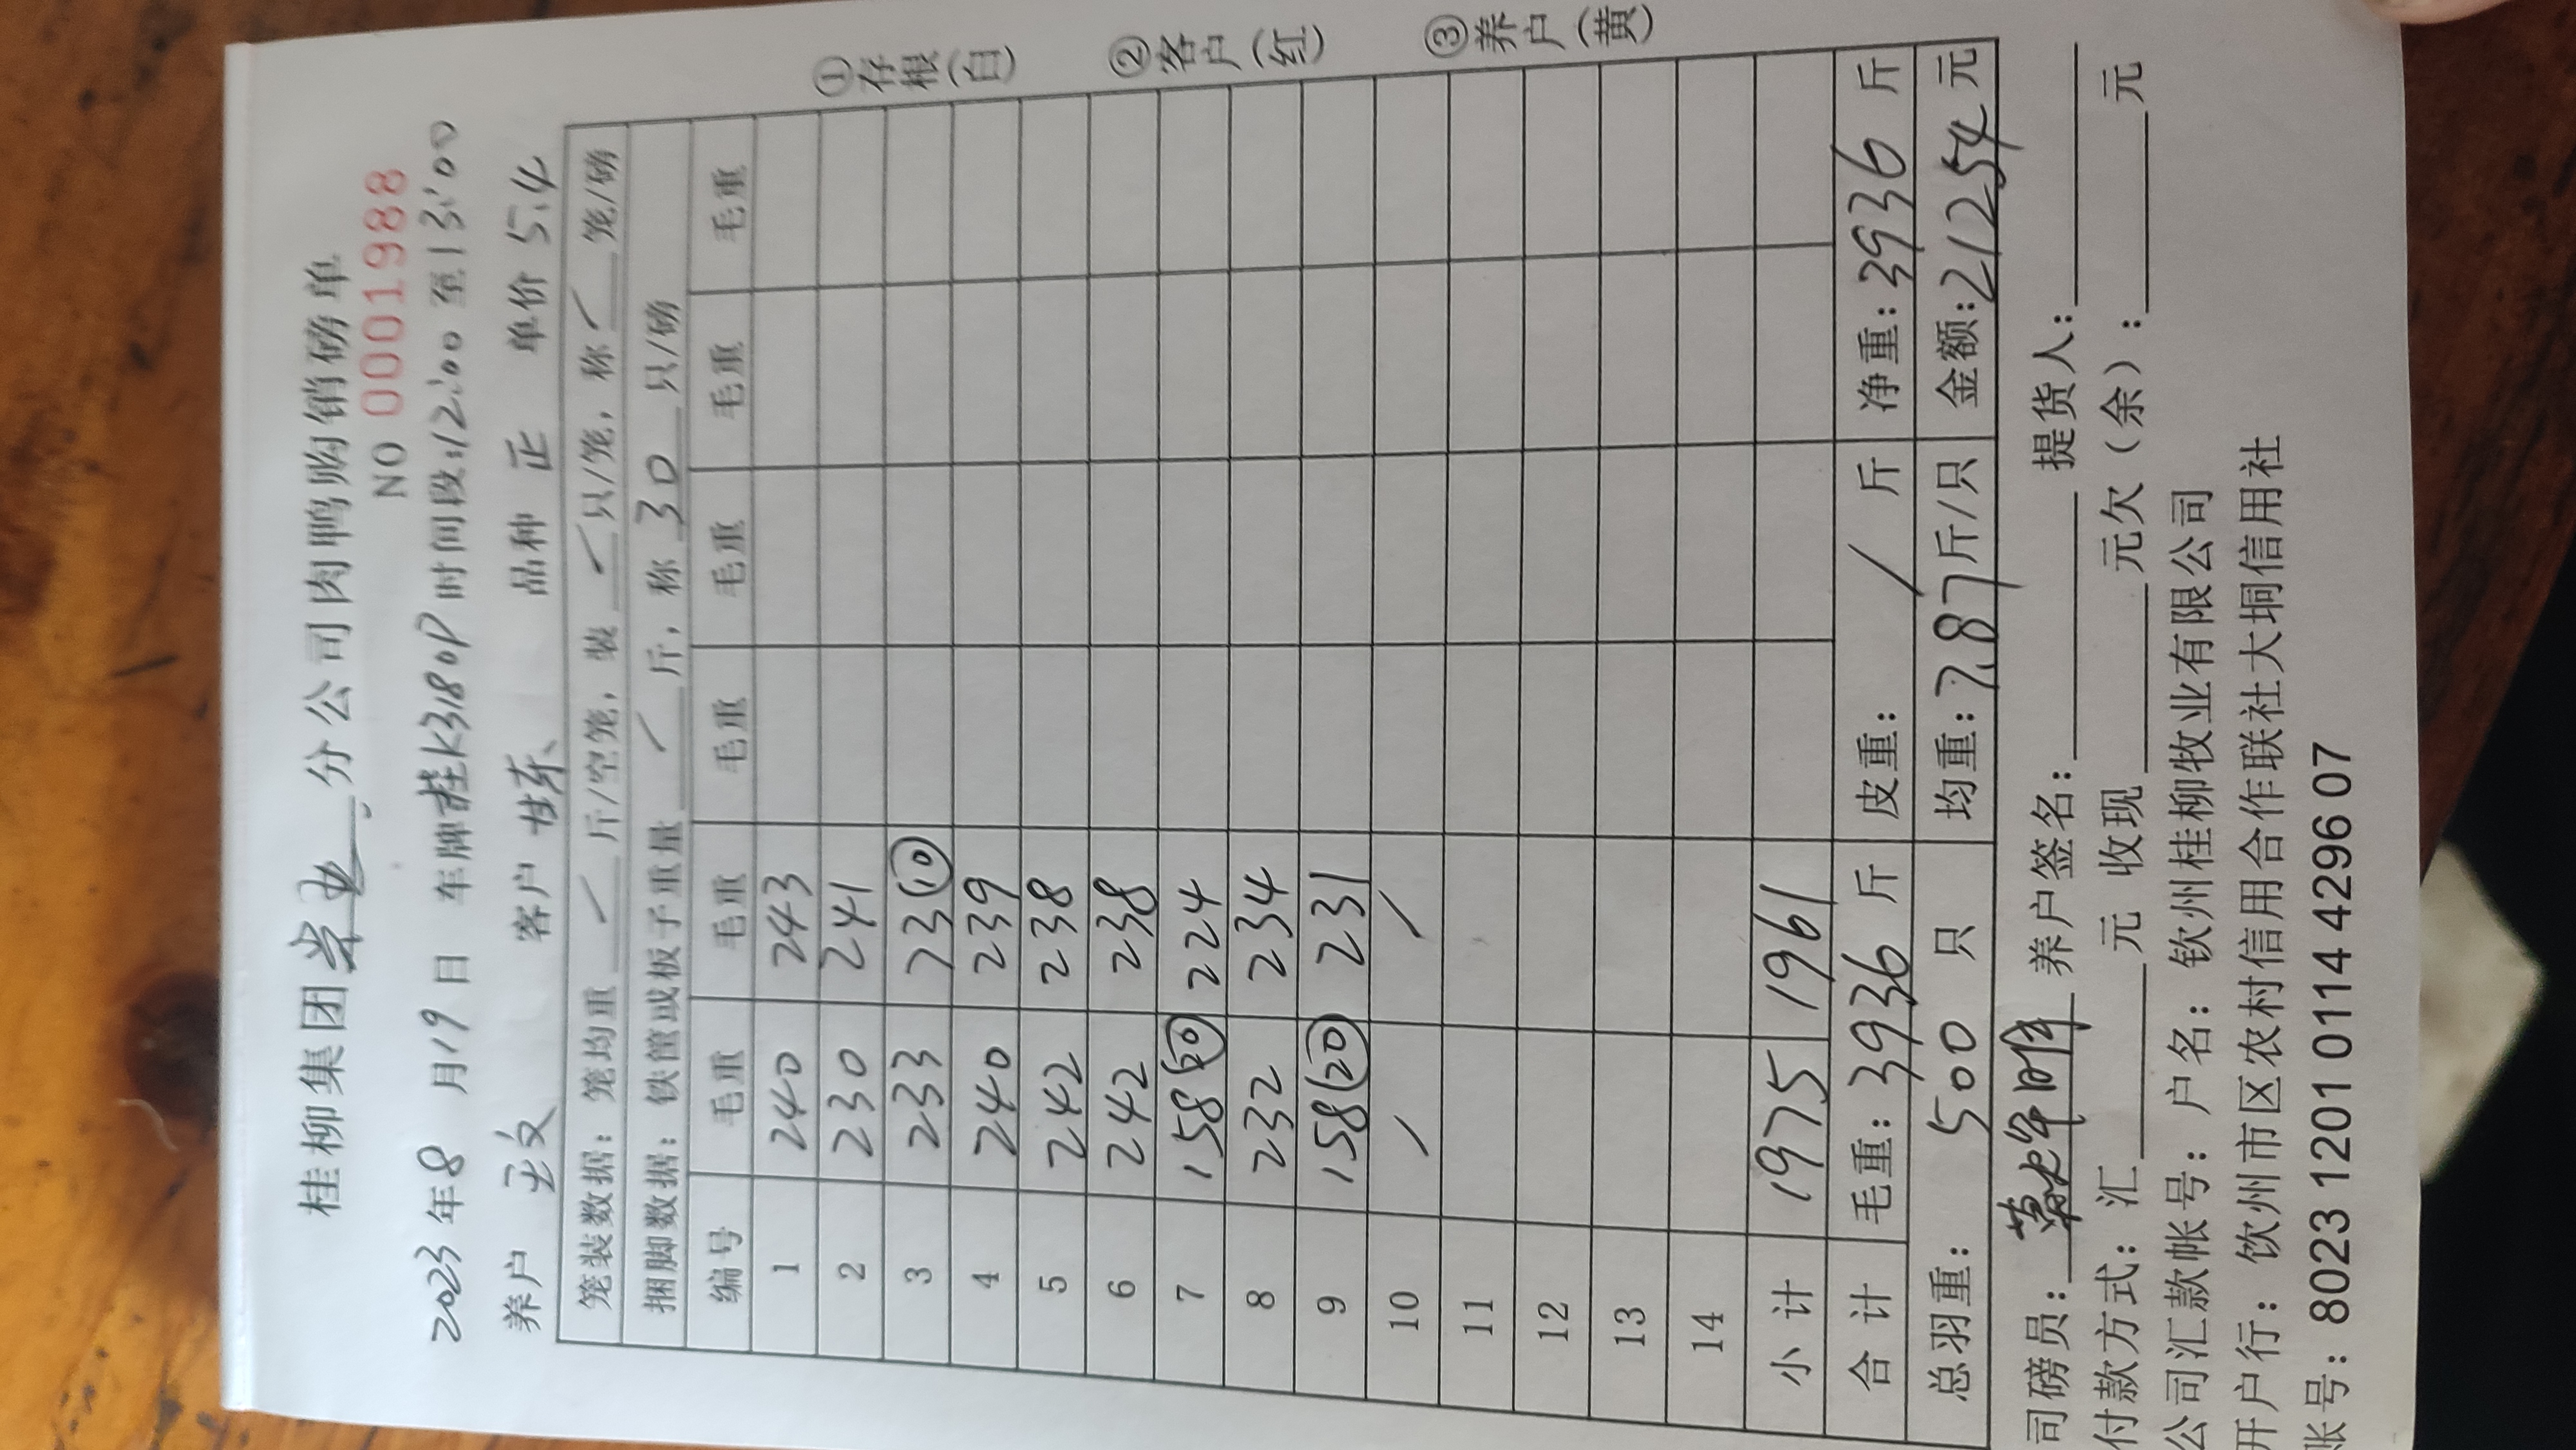 桂柳集团 分公司肉鸭购销磅单
NO 0001988
2023年8月19日 车牌桂K3180P 时间段:12:00至13:00
养户 天文 客户 桂东 品种 正 单价 5.4
笼装数据：笼均重 ✓ 斤/空笼，装 ✓ 只/笼，称 ✓ 笼/磅
捆脚数据：铁筐或板子重量 ✓ 斤，称 30 只/磅
编号 毛重 毛重 毛重 毛重 毛重 毛重
1 240 243
2 230 241
3 233 73(10)
4 240 239
5 242 238
6 242 238
7 158(20) 224
8 232 234
9 158(20) 231
10 / /
11
12
13
14
小计 1975 1961
合计 毛重：3936 斤 皮重： / 斤 净重：3936 斤
总羽重： 500 只 均重：7.87斤/只 金额：21254元
①存根(白) ②客户(红) ③养户(黄)
司磅员： 养户签名： 提货人：
付款方式：汇 元 收现 元欠(余)： 元
公司汇款帐号：户名：钦州桂柳牧业有限公司
开户行：钦州市区农村信用合作联社大垌信用社
账号：8023 1201 0114 4296 07